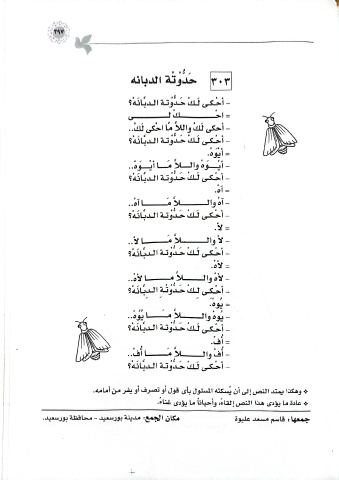 ٢٩٣
٣٠٣ حَدُّوتَة الدبانه
- أحْكى لَكْ حَدُّوتَة الدبَّانَهْ؟
= احْــــكْ لــــى
- أحْكى لَكْ واللاَّ مَا احْكى لَكْ..
- أحْكى لَكْ حَدُّوتَة الدبَّانَهْ؟
= أَيْوَهْ.
- أَيْــوَهْ واللــأ مَــا أَيْــوَهْ..
- أحْكى لَكْ حَدُّوتَة الدبَّانَهْ؟
= آهْ.
- آهْ واللــــــأ مَــــــا آهْ..
- أحْكى لَكْ حَدُّوتَة الدبَّانَهْ؟
= لأ.
- لأ واللــــــأ مَــــــا لأ..
- أحْكى لَكْ حَدُّوتَة الدبَّانَهْ؟
= لأهْ.
- لأهْ واللــــأ مَــــا لأهْ..
- أحْكى لَكْ حَدُّوتَة الدبَّانَهْ؟
= يُوهْ.
- يُوهْ واللــــأ مَــــا يُوهْ..
- أحْكى لَكْ حَدُّوتَة الدبَّانَهْ؟
= أُفْ.
- أُفْ واللــــأ مَــــا أُفْ..
- أحْكى لَكْ حَدُّوتَة الدبَّانَهْ؟
* وهكذا يمتد النص إلى أن يُسكته المسئول بأى قول أو تصرف أو يفر من أمامه.
* عادة ما يؤدى هذا النص إلقاءً، وأحياناً ما يؤدى غناءً.
جمعها: قاسم مسعد عليوة مكان الجمع: مدينة بورسعيد - محافظة بورسعيد.